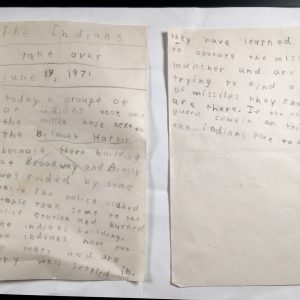 The Indians
take over
June 14, 1971
today a groupe of
of indians took over
the missle base next to
the Belmont Harbor
because there building
at Broadway and
was raided by some
police. The police clubed
people took some to the
police station and burned
the indians building.
the indians have put
up tents and are
very well settled in.
they have learned
to operate the missle
launcher and are
trying to find a
of missiles they know
are there. If the
guard come in on
the indians plan to